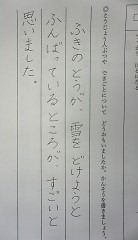 ◎とうじょうじんぶつや できごとについて どうおもいましたか。かんそうを書きましょう。
ふきのとうが、雪をどけようと
ふんばっているところが、すごいと
思いました。